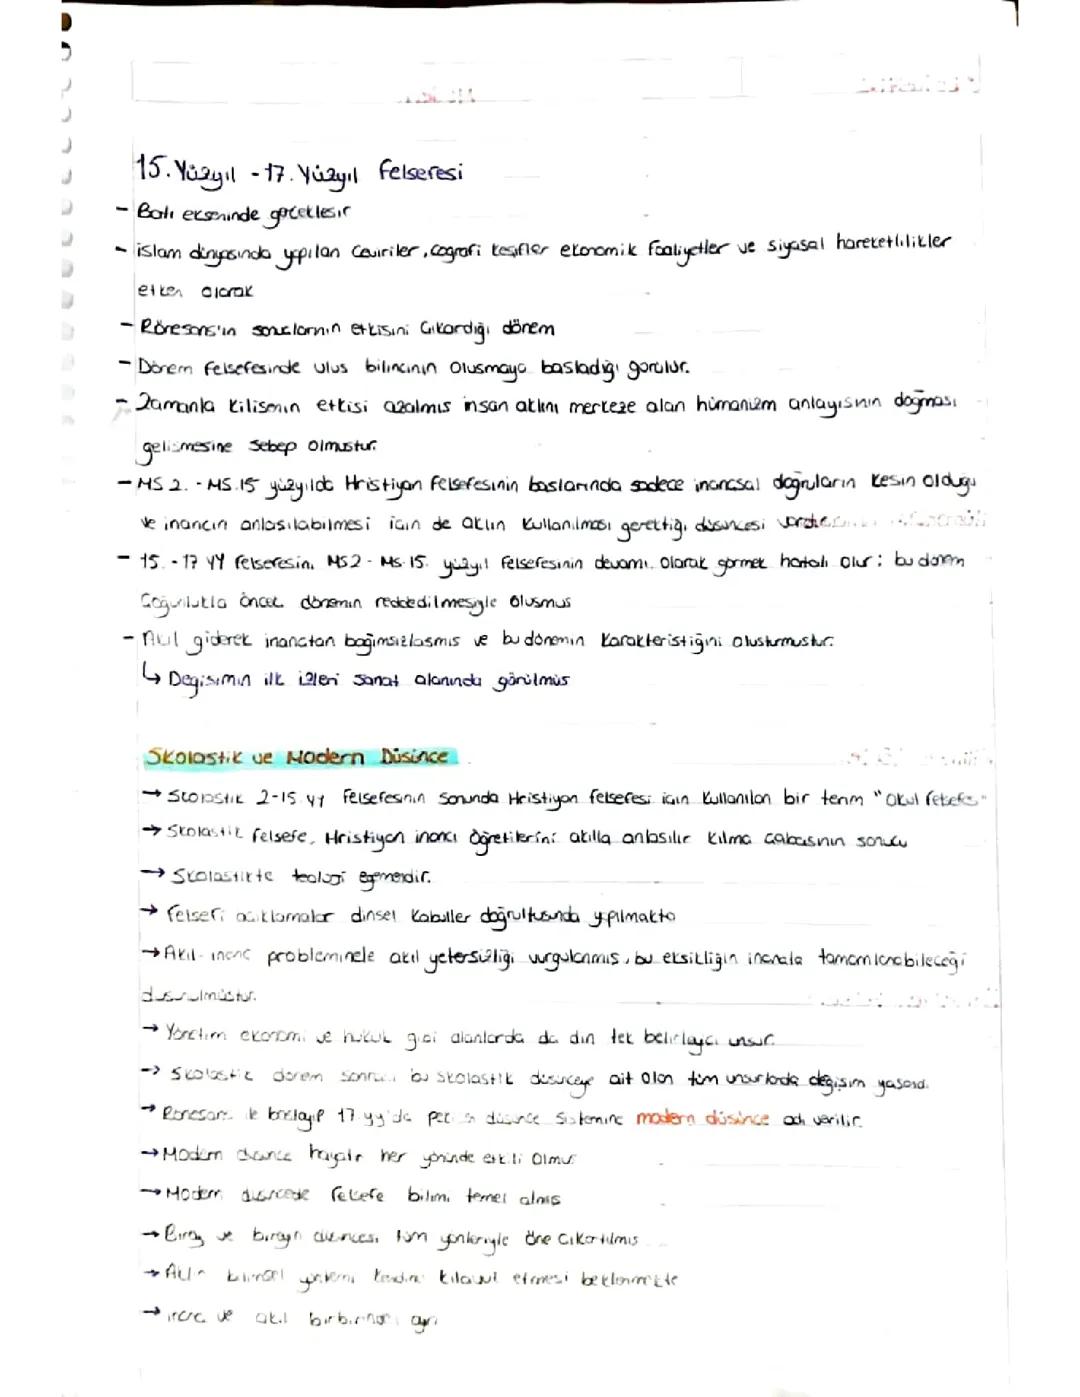 15. Yüzyıl - 17. Yüzyıl felsefesi
- Batı ekseninde geçekleşir
- islam dünyasında yapılan çeviriler, coğrafi keşifler ekonomik faaliyetler ve siyasal hareketlilikler
etken olarak
- Rönesans'ın sonuclarının etkisini Cıkardığı dönem
- Dönem felsefesinde ulus bilincinin olusmaya basladığı gorulur.
- Zamanla kilisenin etkisi azalmıs insan aklını merkeze alan hümanizm anlayısının doğması
gelismesine sebep olmustur.
- MS 2. - MS.15 yüzyılda Hristiyan felsefesinin baslarında sadece inancsal doğruların kesin olduğu
ve inancın anlasılabilmesi icin de aklın kullanılması gerektiği düsüncesi vardır
- 15. - 17 YY felsefesini MS2 - MS.15. yüzyıl felsefesinin devamı olarak görmek hatalı olur : bu dönem
Coğunlukla önceki dönemin reddedilmesiyle olusmus
- Akıl giderek inanctan bağımsızlasmıs ve bu dönemin karakteristiğini olusturmustur.
↳ Degisimin ilk izleri sanat alanında görülmüs
Skolastik ve Modern Düsünce
→ Skolastik 2-15 yy felsefesinin sonunda Hristiyan felsefesi icin kullanılan bir terim "okul felsefesi"
→ Skolastik felsefe, Hristiyan inancı öğretilerini akılla anlasılır kılma cabasının sonucu
→ Skolastikte teoloji egemendir.
→ felsefi acıklamalar dinsel kabuller doğrultusunda yapılmakta
→ Akıl-inanc probleminde akıl yetersizliği vurgulanmıs, bu eksikliğin inancla tamamlanabileceği
dusunulmüstür.
→ Yönetim ekonomi ve hukuk gibi alanlarda da din tek belirleyici unsur.
→ Skolastik dönem sonrası bu skolastik düsünceye ait olan tüm unsurlarda değisim yasandı.
→ Rönesans ile baslayıp 17.yy'da düsünce sistemine modern düsünce adı verilir.
→ Modern düsünce hayatın her yönünde etkili olmus
→ Modern düsüncede felsefe bilimi temel almıs
→ Birey ve bireyin düsüncesi tüm yönleriyle öne cıkartılmıs
→ Aklın bilimsel yöntemi kendine kılavuz etmesi beklenmekte
→ inanc ve akıl birbirinden ayrı